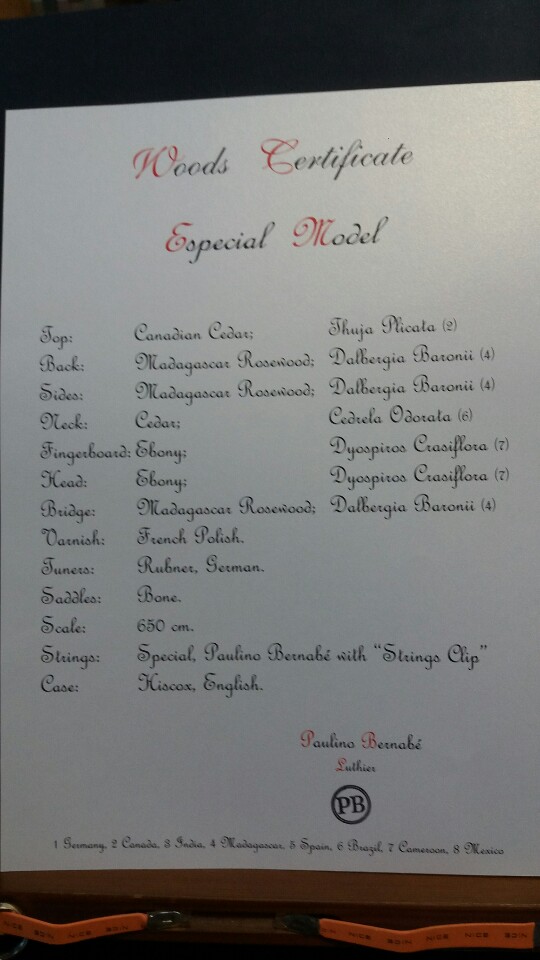 Woods Certificate
Especial Model
Top: Canadian Cedar; Thuja Plicata (2)
Back: Madagascar Rosewood; Dalbergia Baronii (4)
Sides: Madagascar Rosewood; Dalbergia Baronii (4)
Neck: Cedar; Cedrela Odorata (6)
Fingerboard: Ebony; Dyospiros Crasiflora (7)
Head: Ebony; Dyospiros Crasiflora (7)
Bridge: Madagascar Rosewood; Dalbergia Baronii (4)
Varnish: French Polish.
Tuners: Rubner, German.
Saddles: Bone.
Scale: 650 cm.
Strings: Special, Paulino Bernabé with “Strings Clip”
Case: Hiscox, English.
Paulino Bernabé
Luthier
PB
1 Germany, 2 Canada, 3 India, 4 Madagascar, 5 Spain, 6 Brazil, 7 Cameroon, 8 Mexico